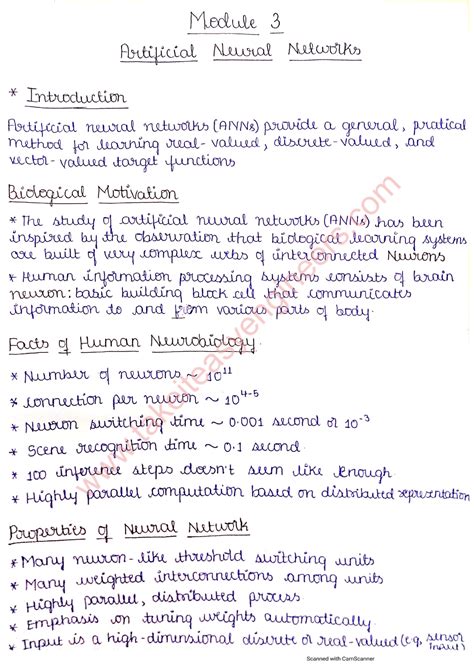 Module 3
Artificial Neural Networks
* Introduction
Artificial neural networks (ANNs) provide a general, pratical
method for learning real-valued, discrete-valued, and
vector-valued target functions
Biological Motivation
* The study of artificial neural networks (ANNs) has been
inspired by the observation that biological learning systems
are built of very complex webs of interconnected Neurons
* Human information processing systems consists of brain
neuron: basic building block cell that communicates
information to and from various parts of body.
Facts of Human Neurobiology.
* Number of neurons ~ 10¹¹
* connection per neuron ~ 10⁴⁻⁵
* Neuron switching time ~ 0.001 second or 10⁻³
* Scene recognition time ~ 0.1 second.
* 100 inference steps doesn't seem like enough
* Highly parallel computation based on distributed representation
Properties of Neural Network
* Many neuron-like threshold switching units
* Many weighted interconnections among units
* Highly parallel, distributed process
* Emphasis on tuning weights automatically
* Input is a high-dimensional discrete or real-valued (e.g, sensor
input)
www.takeiteasyengineers.com
Scanned with CamScanner